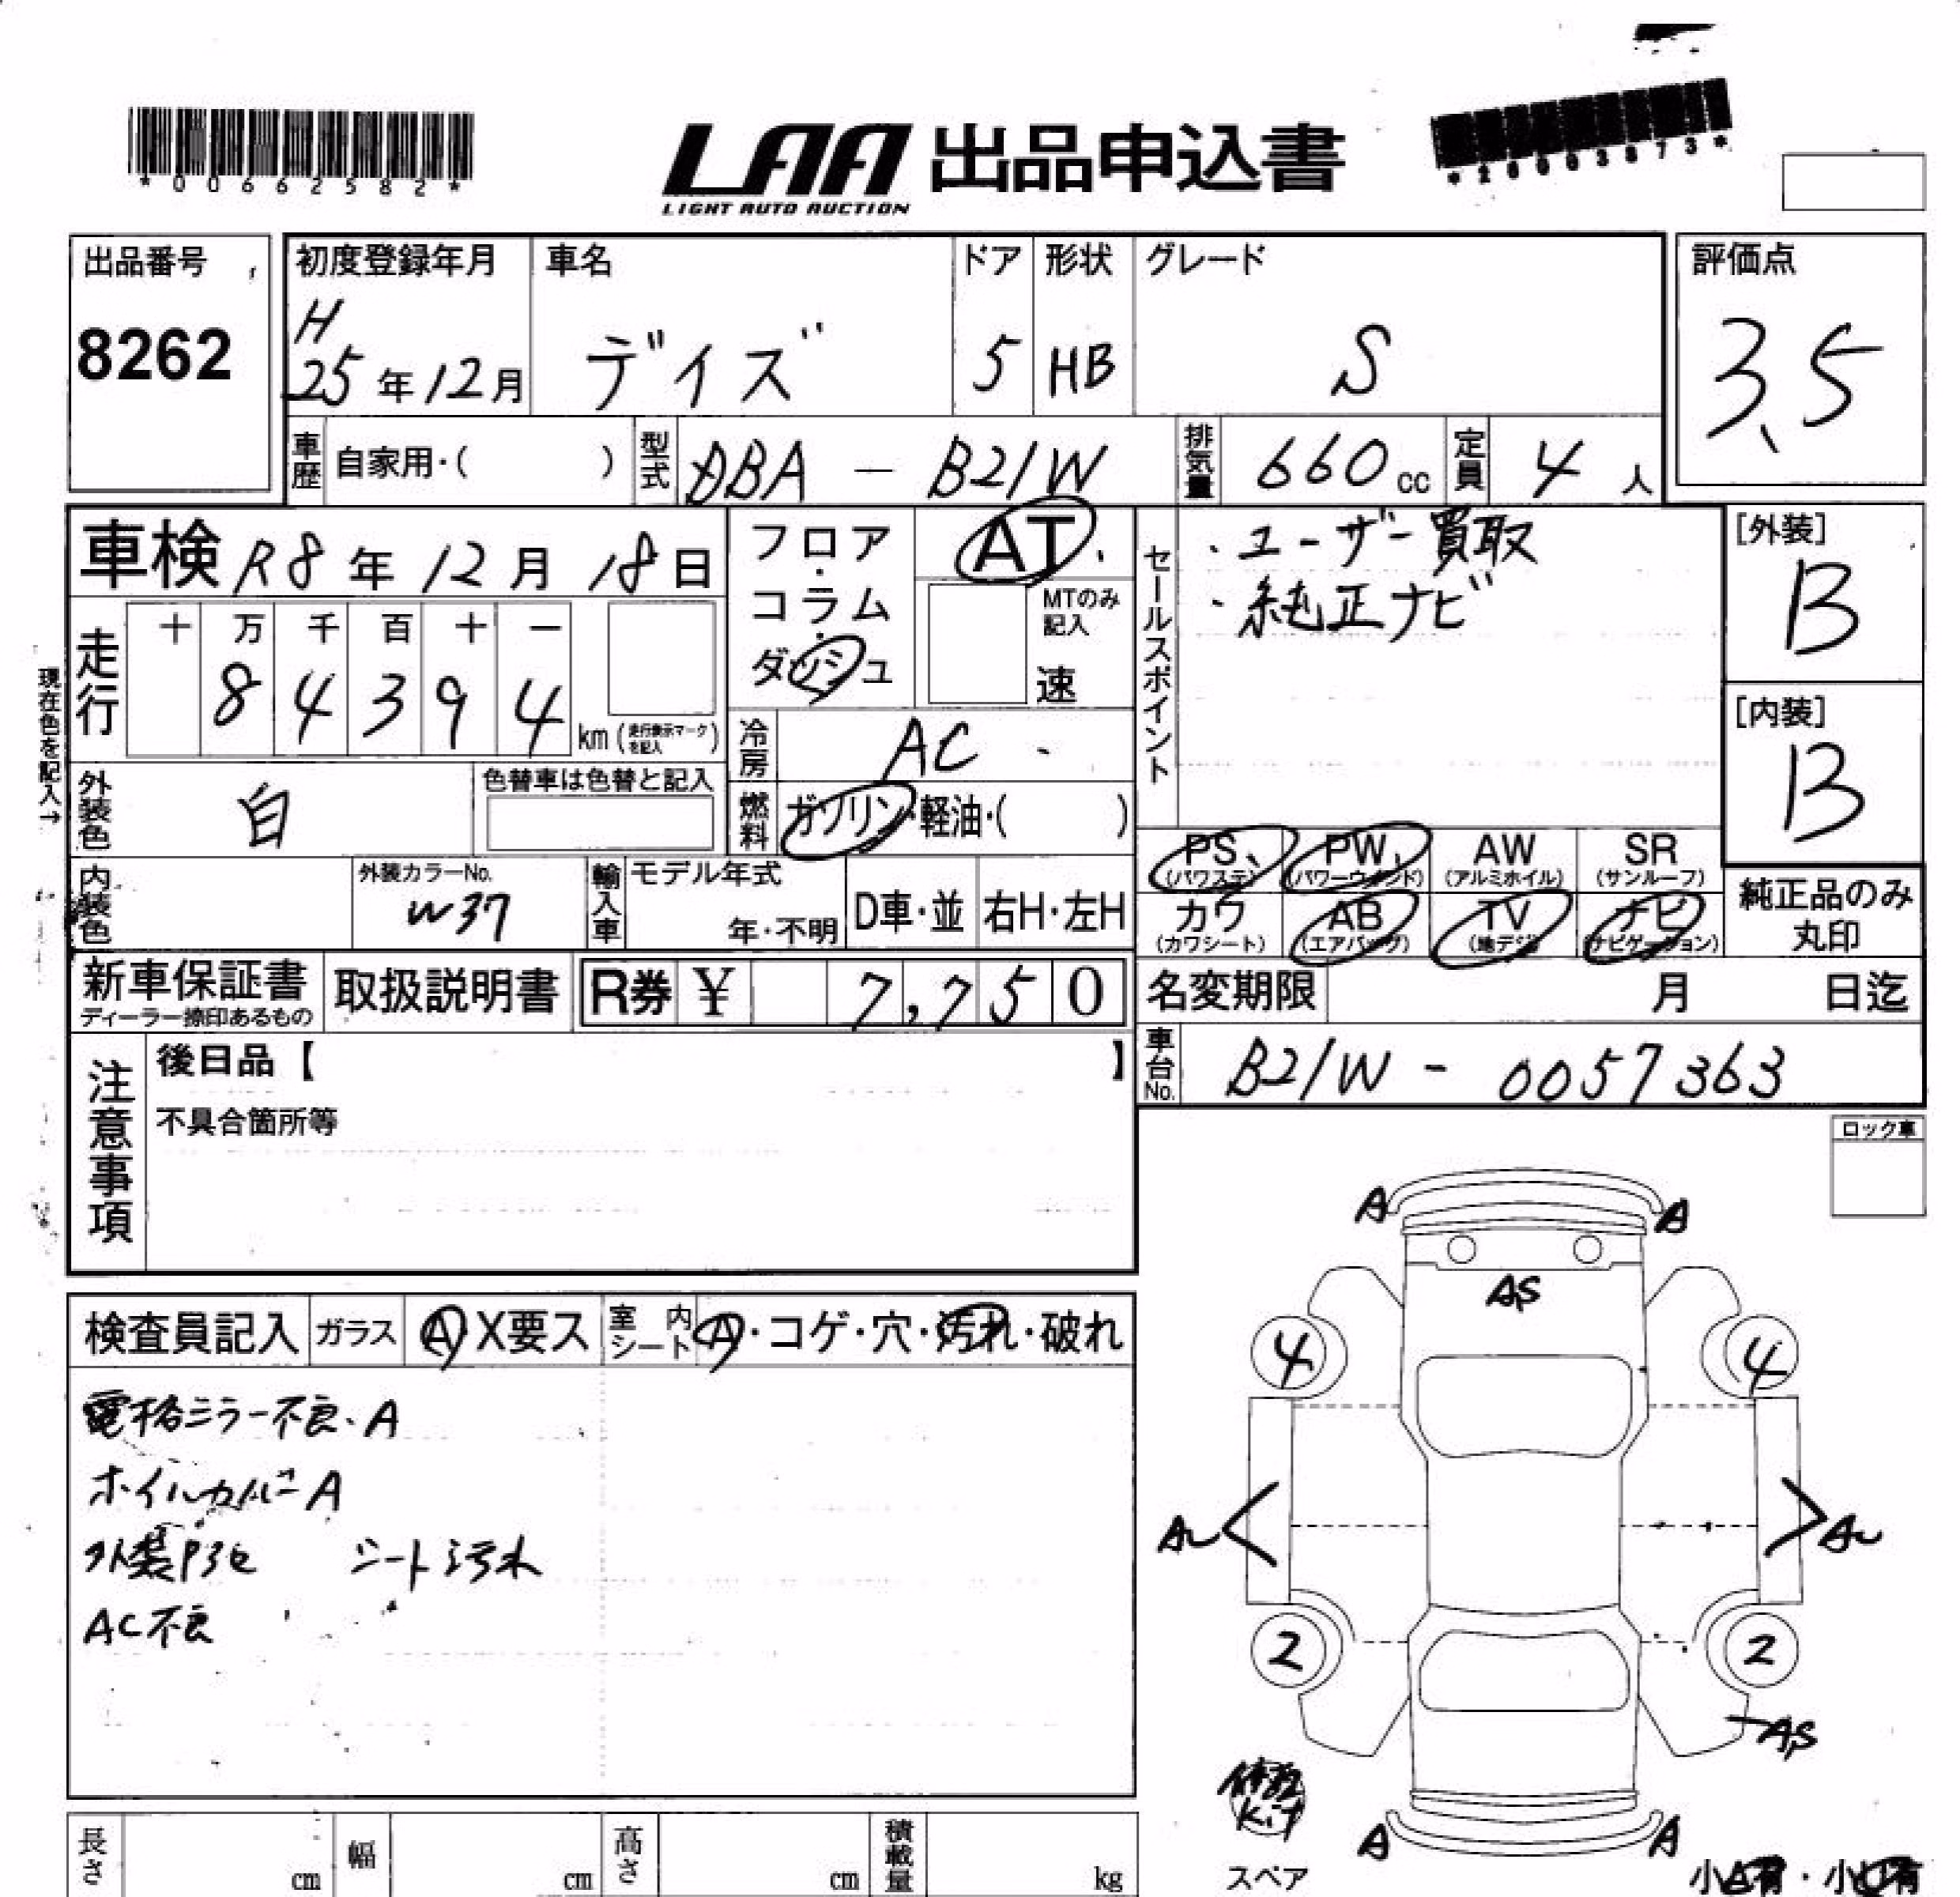 *00662582*
LAA 出品申込書
LIGHT AUTO AUCTION
*26003873*
出品番号
8262
初度登録年月
H
25年12月
車名
デイズ
ドア
5
形状
HB
グレード
S
評価点
3.5
車歴 自家用・( )
型式 DBA - B21W
排気量 660 cc
定員 4 人
車検 R8年12月18日
フロア・コラム・ダッシュ
AT
MTのみ記入
速
セールスポイント
・ユーザー買取
・純正ナビ
[外装]
B
[内装]
B
現在色を記入→
走行
十 万 千 百 十 一
8 4 3 9 4
km (走行表示マークを記入)
冷房 AC
外装色 白
色替車は色替と記入
燃料 ガソリン・軽油・( )
PS (パワステ)
PW (パワーウインド)
AW (アルミホイル)
SR (サンルーフ)
内装色
外装カラーNo.
W37
輸入車
モデル年式
年・不明
D車・並
右H・左H
カワ (カワシート)
AB (エアバッグ)
TV (地デジ)
ナビ (ナビゲーション)
純正品のみ丸印
新車保証書
ディーラー捺印あるもの
取扱説明書
R券 ¥ 7,750
名変期限 月 日迄
注意事項
後日品【 】
不具合箇所等
車台No. B21W - 0057363
ロック車
検査員記入
ガラス A X要ス
室内シート A・コゲ・穴・汚れ・破れ
電格ミラー不良・A
ホイルカバーA
外装P3セ シート汚れ
AC不良
A A
AS
4 4
AU AU
2 2
AS
修理
Kit
A A
スペア
小A有・小U有
長さ cm
幅 cm
高さ cm
積載量 kg